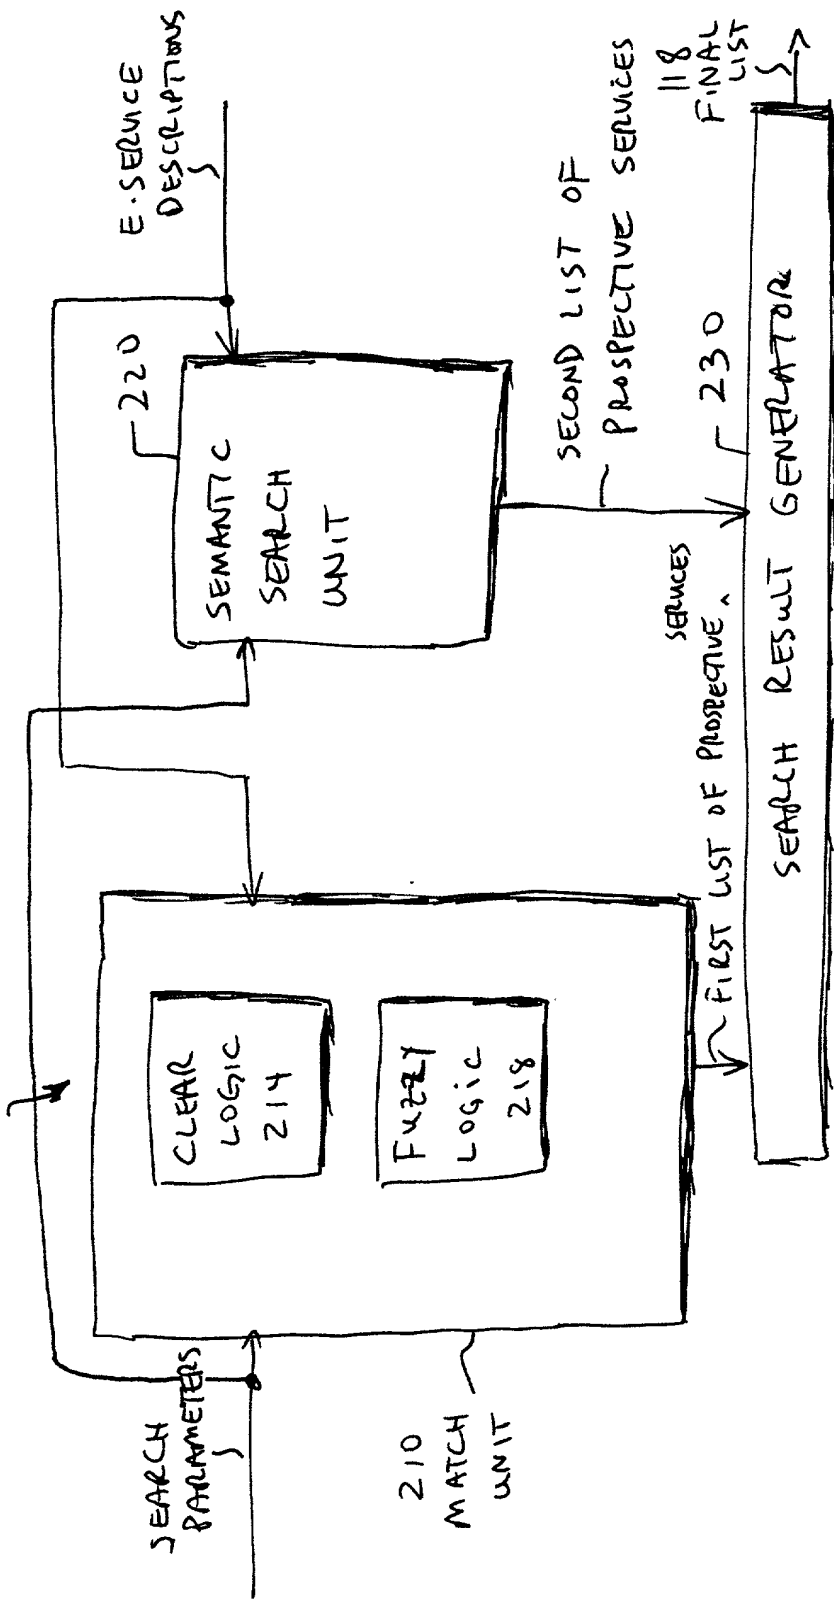 SEARCH
PARAMETERS
210
MATCH
UNIT
CLEAR
LOGIC
214
FUZZY
LOGIC
218
E.SERVICE
DESCRIPTIONS
220
SEMANTIC
SEARCH
UNIT
SECOND LIST OF
PROSPECTIVE SERVICES
SERVICES
FIRST LIST OF PROSPECTIVE ^
230
SEARCH RESULT GENERATOR
118
FINAL
LIST